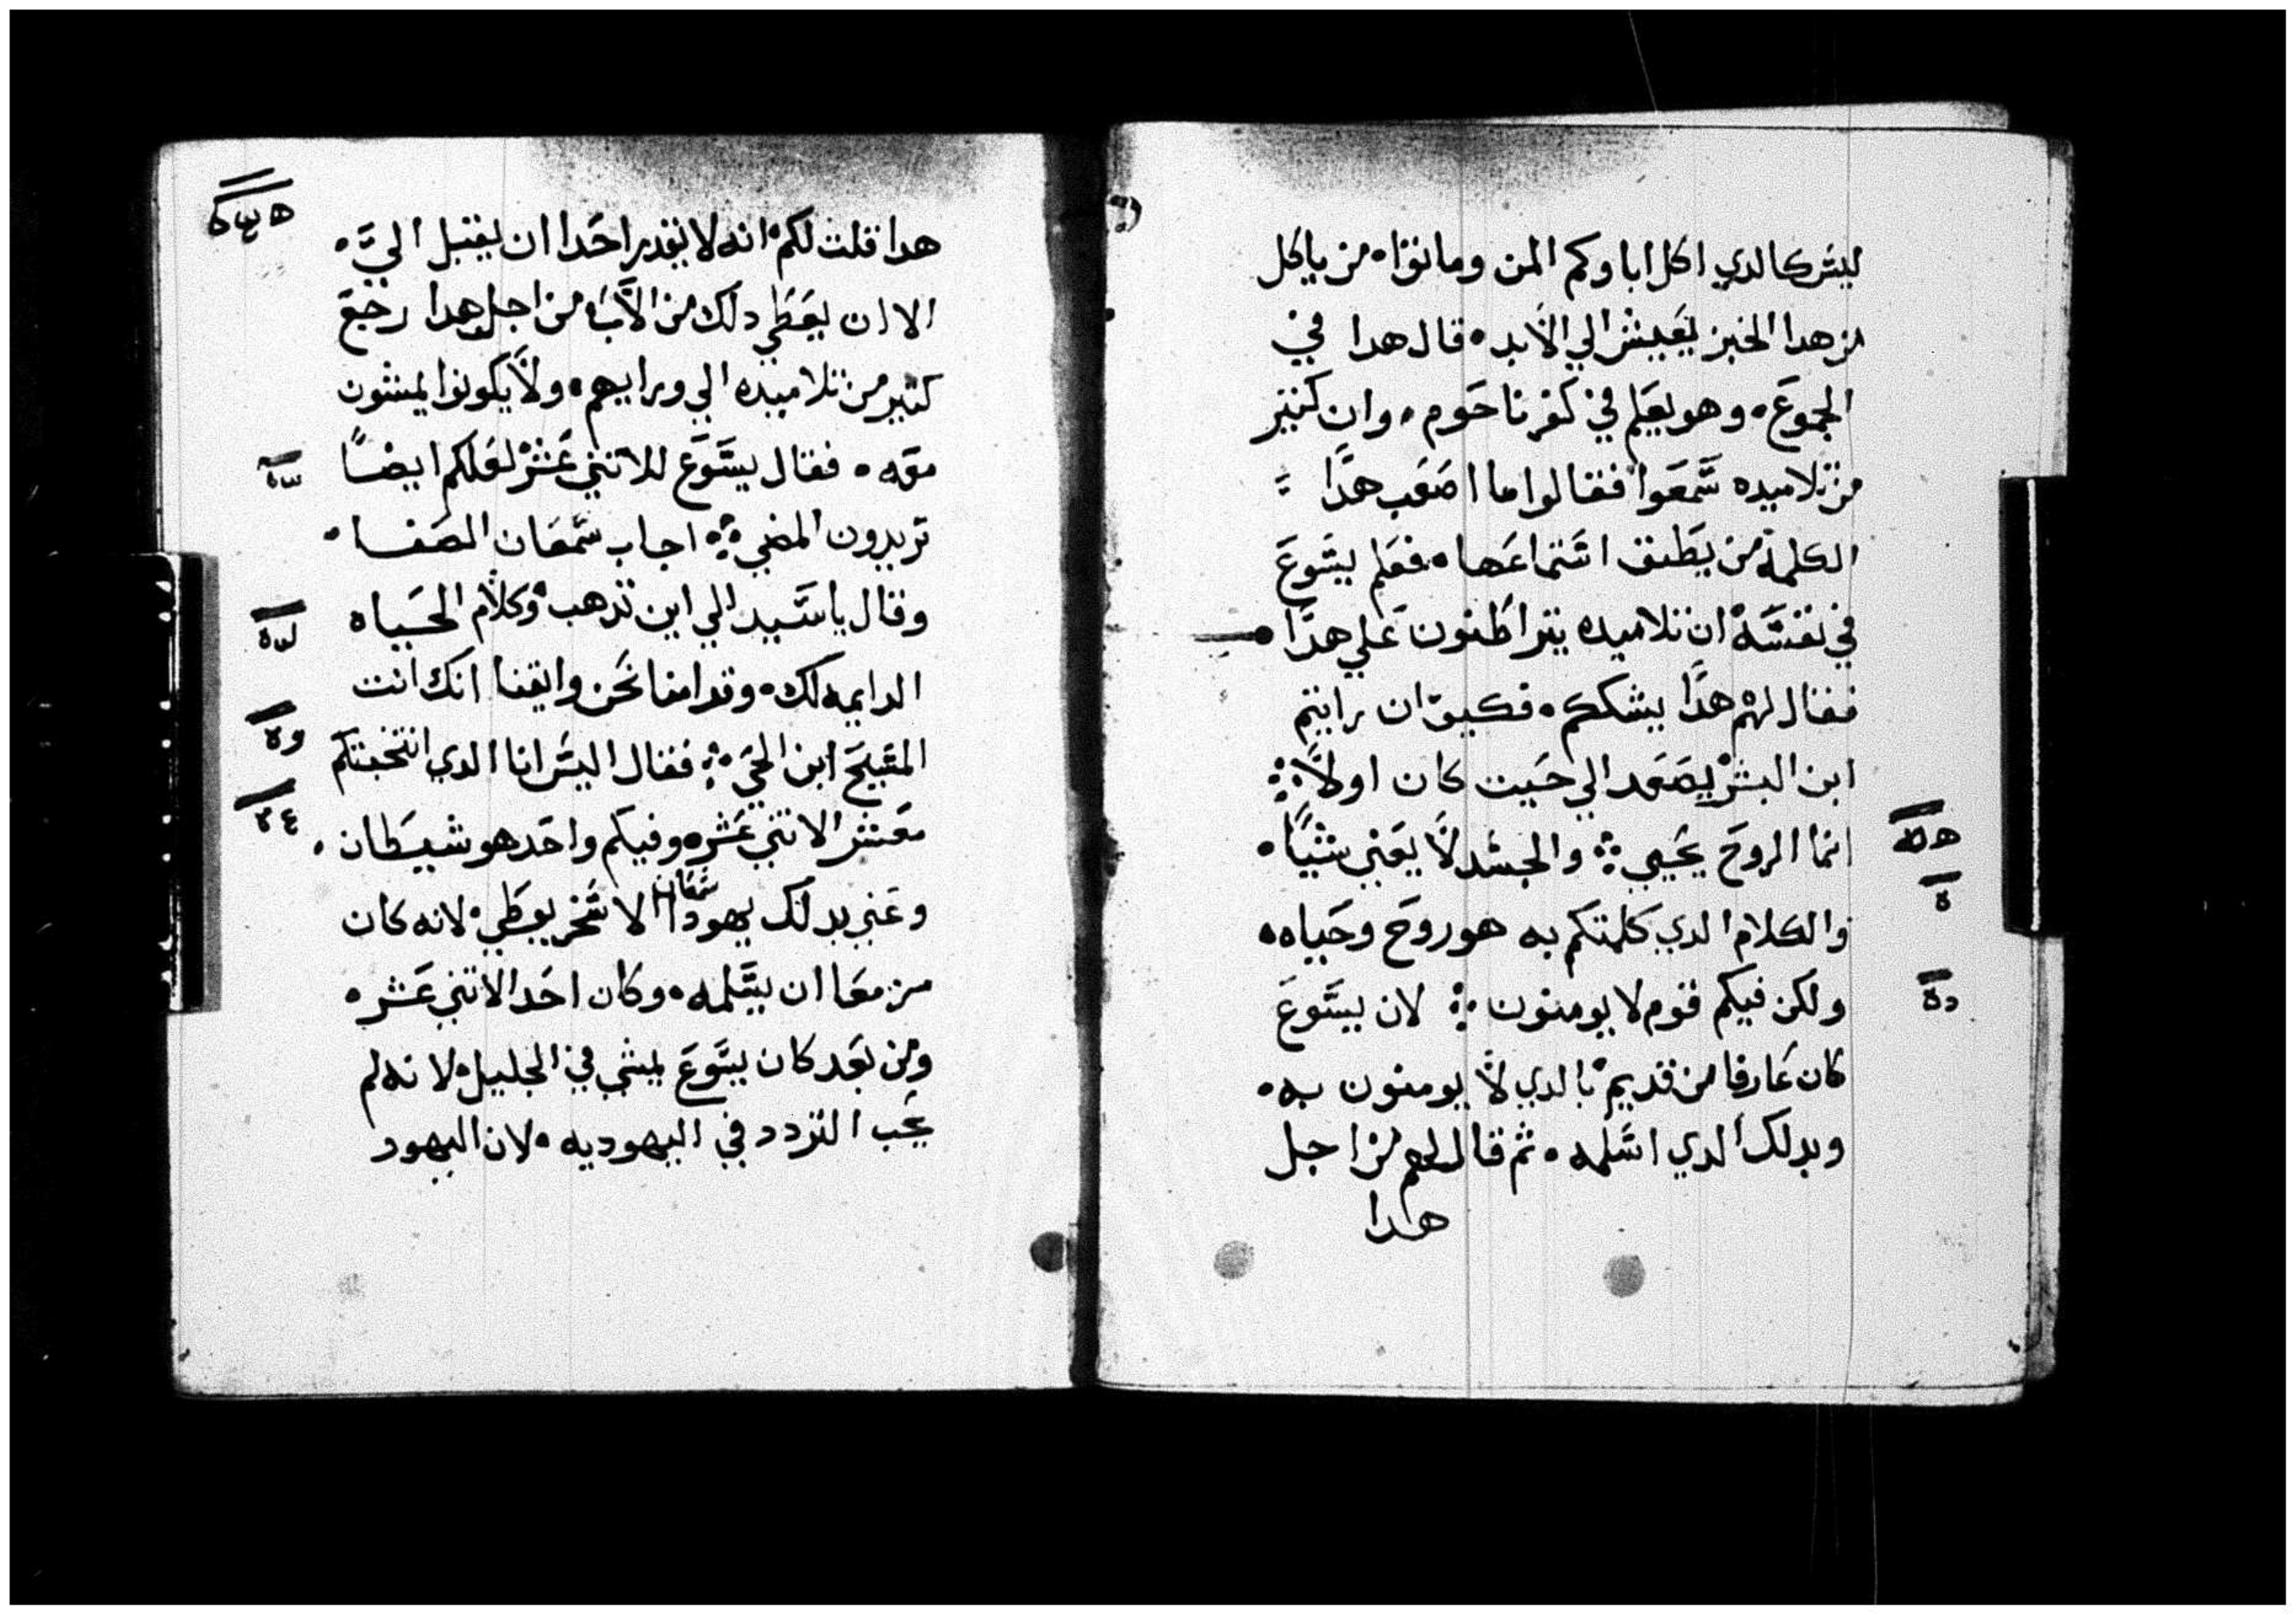 ليس كالدي اكل اباوكم المن وماتوا من ياكل
من هدا الخبز يعيش الي الابد قال هدا في
المجموع وهو يعلم في كفرناحوم وان كثير
من تلاميده سمعوا فقالوا ما اصعب هدا
الكلمة من يطيق استماعها فعلم يسوع
في نفسه ان تلاميده يتراطنون علي هدا
فقال لهم هدا يشككم فكيف ان رايتم
ابن البشر يصعد الي حيت كان اولا
انما الروح يحيي والجسد لا يغني شيا
والكلام الدي كلمتكم به هو روح وحياه
ولكن فيكم قوم لا يومنون لان يسوع
كان عارفا من قديم بالدي لا يومنون به
وبدلك الدي اسلمه ثم قال لهم من اجل
هدا
هدا قلت لكم انه لا يقدر احدا ان يقبل الي
الا ان يعطي دلك من الاب من اجل هدا رجع
كثير من تلاميده الي ورايهم ولا يكونوا يمشون
معه فقال يسوع للاتني عشر لعلكم ايضا
تريدون المضي اجاب سمعان الصفا
وقال يا سيد الي اين ندهب وكلام الحياه
الدايمه لك وقد امنا نحن وايقنا انك انت
المسيح ابن الحي فقال اليس انا الدي انتخبتكم
معشر الاتني عشره وفيكم واحد هو شيطان
وعني بدلك يهودا سمعان الاسخريوطي لانه كان
مزمعا ان يسلمه وكان احد الاتني عشره
ومن بعد كان يسوع يمشي في الجليل لانه لم
يحب التردد في اليهوديه لان اليهود